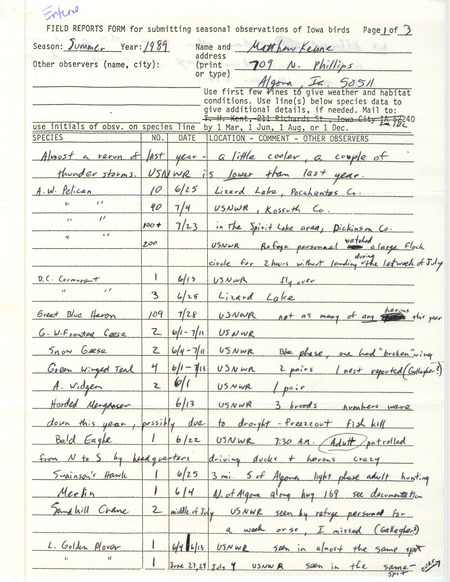 Entire
FIELD REPORTS FORM for submitting seasonal observations of Iowa birds Page 1 of 3
Season: Summer Year: 1989 Name and Matthew Kenne
address
Other observers (name, city): (print 709 N. Phillips
or type)
Algona Ia. 50511
Use first few lines to give weather and habitat
conditions. Use line(s) below species data to
give additional details, if needed. Mail to:
T. H. Kent, 211 Richards St., Iowa City IA 52240
use initials of obsv. on species line by 1 Mar, 1 Jun, 1 Aug, or 1 Dec.
SPECIES NO. DATE LOCATION - COMMENT - OTHER OBSERVERS
Almost a rerun of last year - a little cooler, a couple of
thunder storms. USNWR is lower than last year.
A.W. Pelican 10 6/25 Lizard Lake, Pocahontas Co.
" " 90 7/4 USNWR, Kossuth Co.
" " 100+ 7/23 in the Spirit Lake area, Dickinson Co.
" " 200 USNWR Refuge personnel watched a large flock
circle for 2 hours without landing during the last week of July
D.C. Cormorant 1 6/13 USNWR fly over
" " 3 6/25 Lizard Lake
Great Blue Heron 109 7/28 USNWR not as many of any herons this year
G. W. Fronted Geese 2 6/1-7/11 USNWR
Snow Geese 2 6/4-7/11 USNWR Blue phase, one had "broken" wing
Green Winged Teal 4 6/1-7/13 USNWR 2 pairs 1 nest reported (Gallagher?)
A. Widgeon 2 6/1 USNWR 1 pair
Hooded Merganser 6/13 USNWR 3 broods numbers were
down this year, possibly due to drought-freezeout fish kill
Bald Eagle 1 6/22 USNWR 7:30 AM. Adult patrolled
from N to S by headquarters driving ducks & herons crazy
Swainson's Hawk 1 6/25 3 mi. S of Algona light phase adult hunting
Merlin 1 6/4 N. of Algona along hwy 169 see documentation
Sandhill Crane 2 middle of July USNWR seen by refuge personnel for
a week or so, I missed (Gallagher)
L. Golden Plover 1 6/4 6/13 USNWR seen in almost the same spot
" " 1 June 27, 29 July 4 USNWR seen in the same spot
over